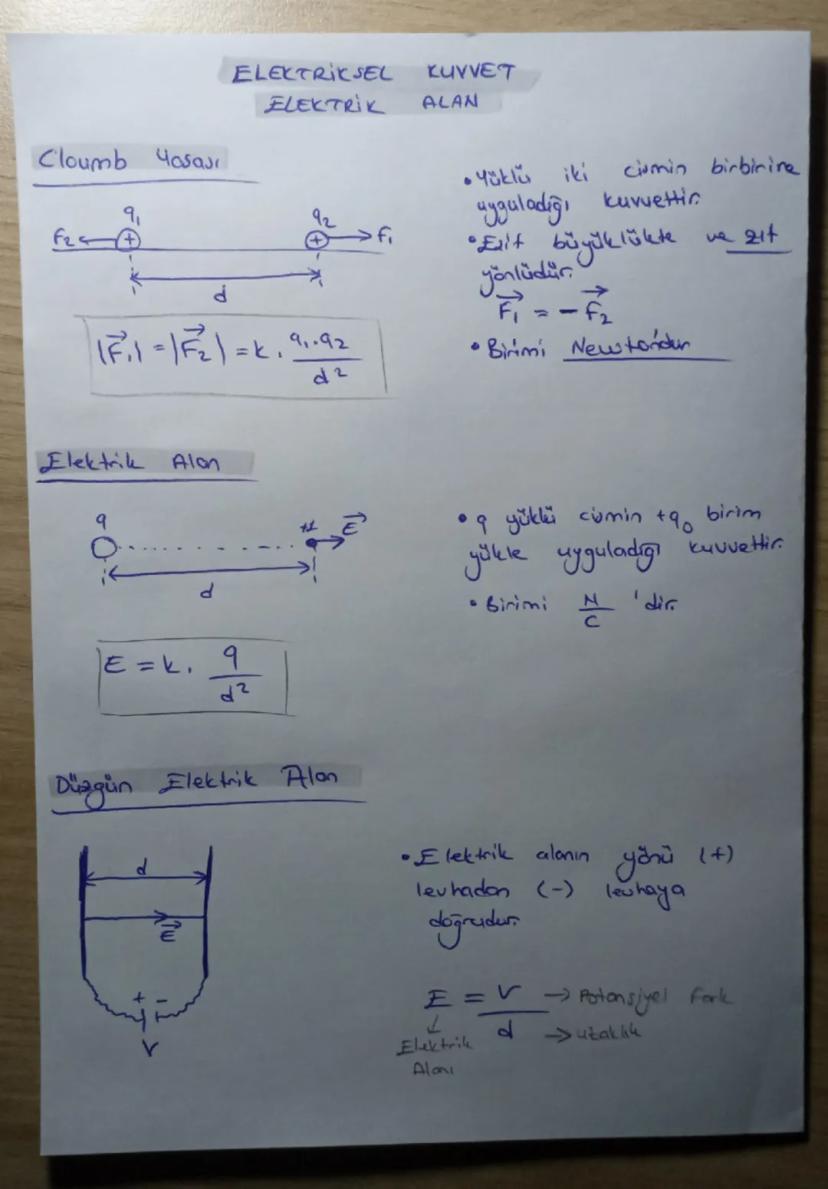 ELEKTRİKSEL KUVVET
ELEKTRİK ALAN
Cloumb Yasası
q₁ q₂
F₂ + + F₁
d
|F₁| = |F₂| = k . q₁.q₂ / d²
• Yüklü iki cismin birbirine
uyguladığı kuvvettir.
• Eşit büyüklükte ve zıt
yönlüdür.
F₁ = - F₂
• Birimi Newton'dur
Elektrik Alan
q +1 E
d
E = k . q / d²
• q yüklü cismin +q₀ birim
yükle uyguladığı kuvvettir.
• Birimi N/C 'dir.
Düzgün Elektrik Alan
d
E
+ -
V
• Elektrik alanın yönü (+)
levhadan (-) levhaya
doğrudur.
E = V / d
→ Potansiyel Fark
→ uzaklık
Elektrik
Alanı